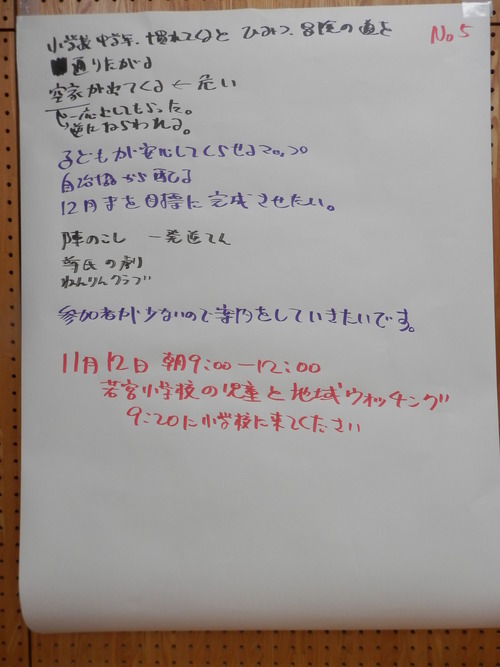 No5
小学校 中学年. 慣れてくると ひみつ、の道を
通りたがる
空家が出てくる ← 危い
一応としてもらった。
逆にねらわれる。
子どもが安心してくらせる
自治協から配る
12月までを目標に完成させたい。
陣のこし 一発逆てん
尊氏の劇
ねんりんクラブ
参加者が少ないので案内をしていきたいです。
11月12日 朝9:00ー12:00
若宮小学校の児童と地域ウォッチング
9:20に小学校に来てください